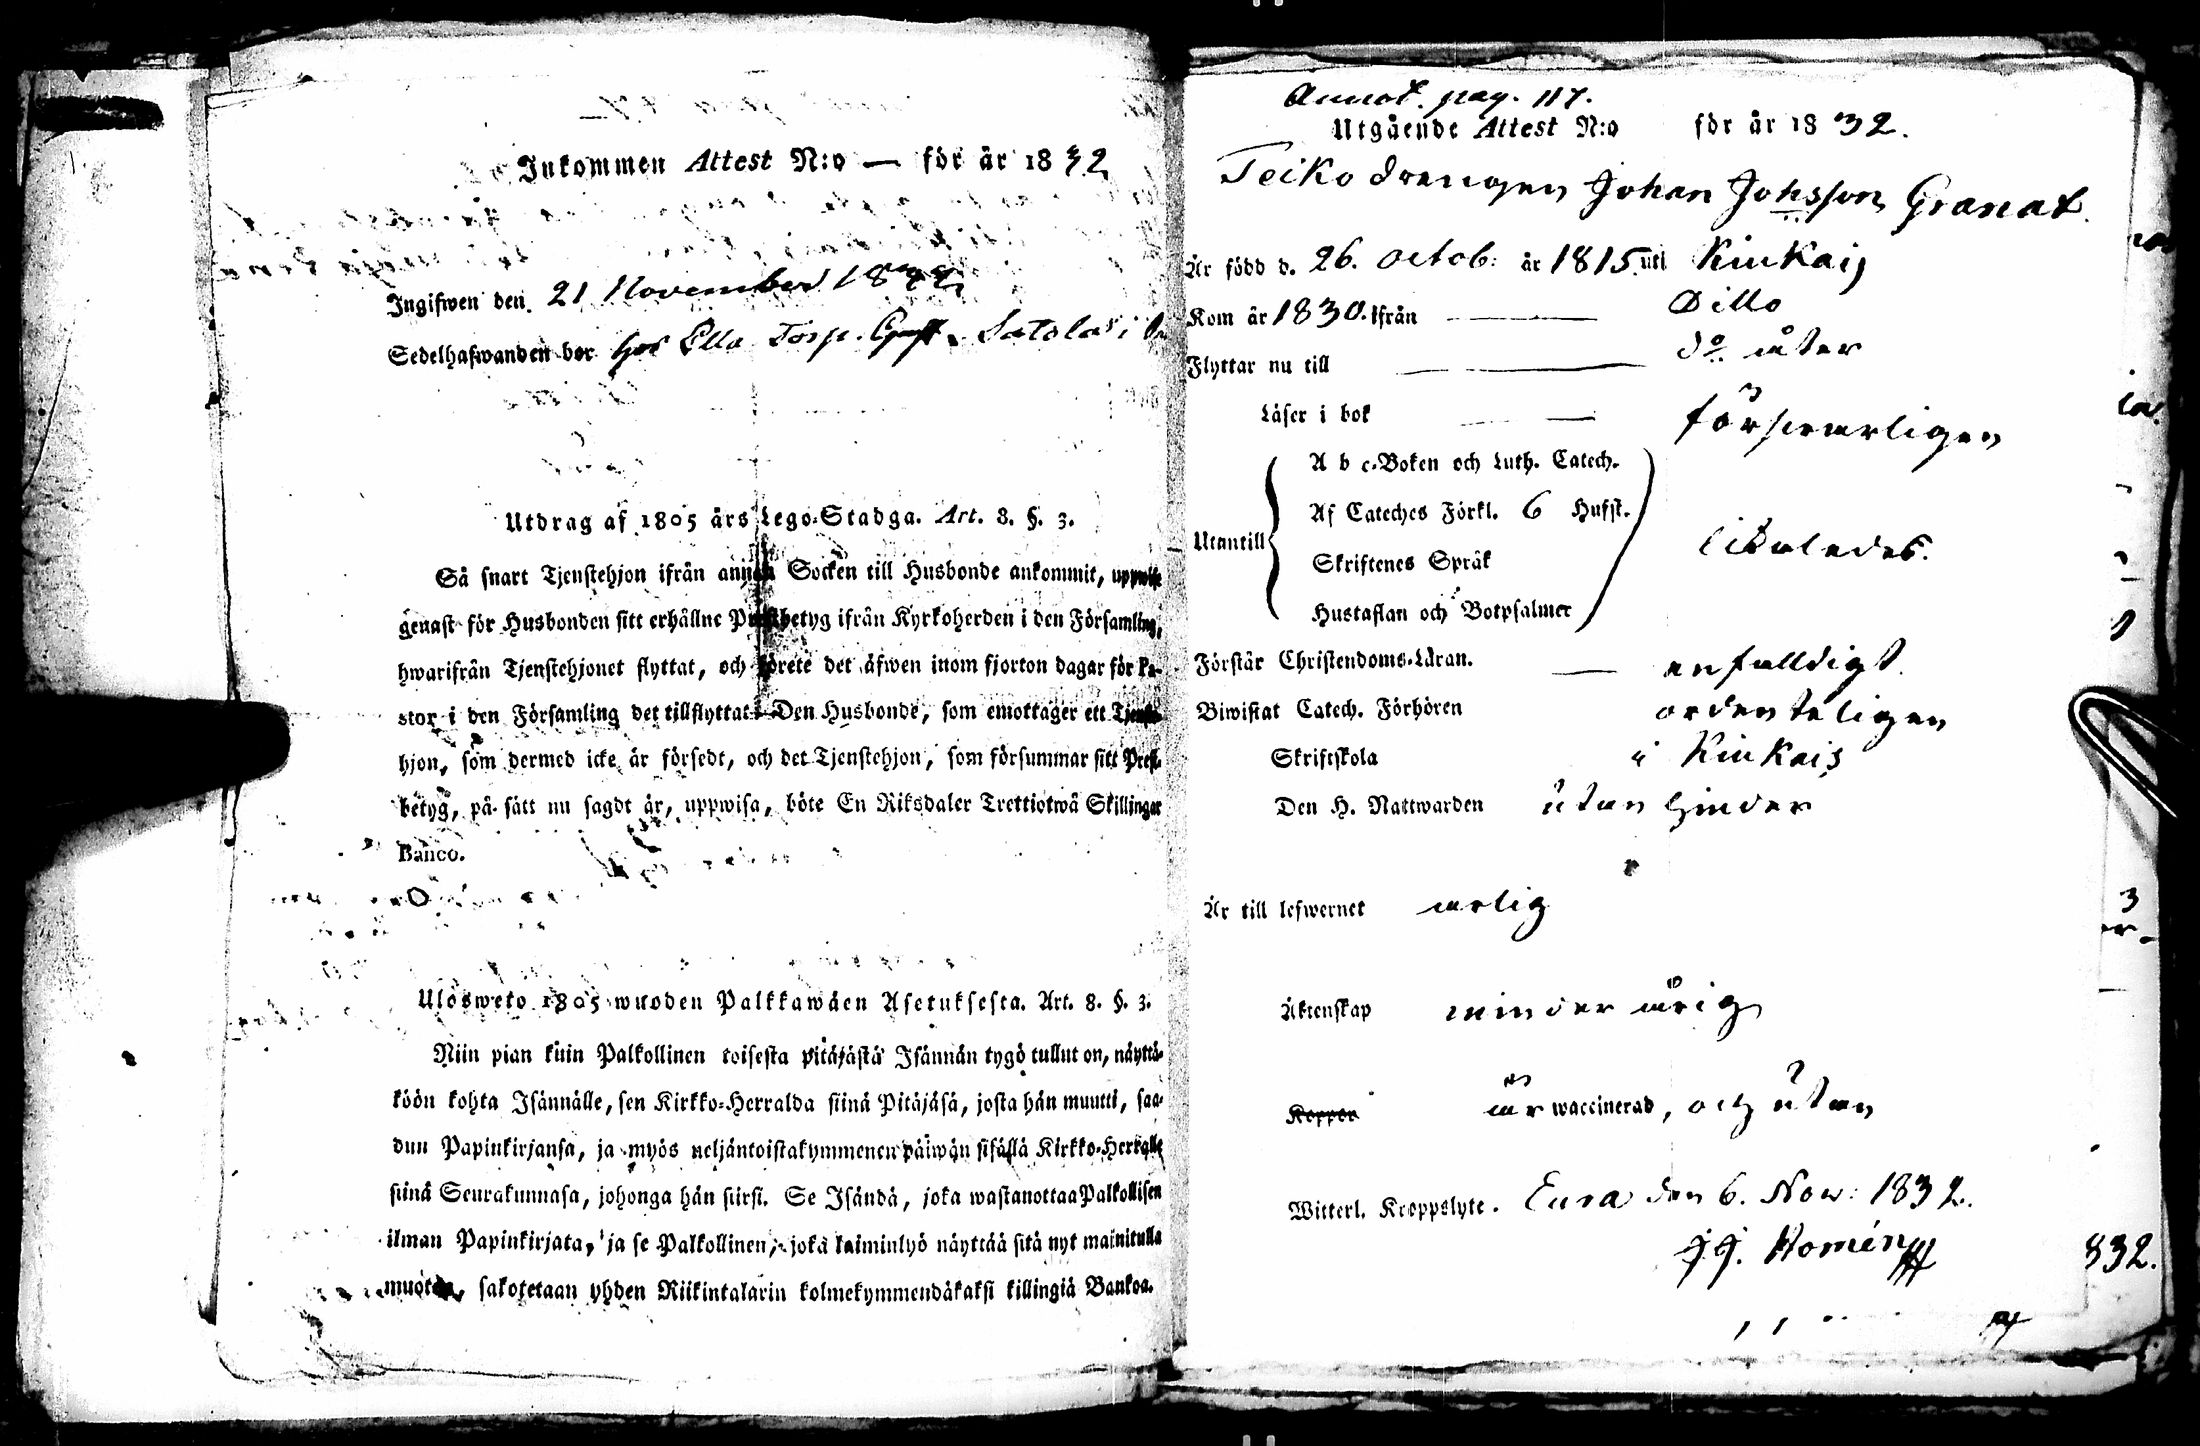 Inkommen Attest N:o — för år 1832
Ingifwen den 21 November 1832
Sedelhafwanden bor hos Ella Torp. Gust. Satola i
Utdrag af 1805 års Lego-Stadga. Art. 8. §. 3.
Så snart Tjenstehjon ifrån annan Socken till Husbonde ankommit, uppwise
genast för Husbonden sitt erhållne Prestbetyg ifrån Kyrkoherden i den Församling,
hwarifrån Tjenstehjonet flyttat, och förete det äfwen inom fjorton dagar för Pa-
stor i den Församling det tillflyttat. Den Husbonde, som emottager ett Tjenste-
hjon, som dermed icke är försedt, och det Tjenstehjon, som försummar sitt Prest-
betyg, på sätt nu sagdt är, uppwisa, böte En Riksdaler Trettiotwå Skillingar
Banco.
Ulosweto 1805 wuoden Palkkawäen Asetuksesta. Art. 8. §. 3.
Niin pian kuin Palkollinen toisesta pitäjästä Isännän tygö tullut on, näyttä-
köön kohta Isännälle, sen Kirkko-Herralda siinä Pitäjäsä, josta hän muutti, saa-
dun Papinkirjansa, ja myös neljäntoistakymmenen päiwän sisällä Kirkko-Herralle
siinä Seurakunnasa, johonga hän siirsi. Se Isändä, joka wastanottaa Palkollisen
ilman Papinkirjata, ja se Palkollinen, joka laiminlyö näyttää sitä nyt mainitulla
muotoa, sakotetaan yhden Riikintalarin kolmekymmendäkaksi killingiä Bankoa.
Annot. pag. 117.
Utgående Attest N:o för år 1832.
Teiko drengen Johan Johsson Granat.
Är född d. 26. octob: år 1815. uti Kiukais
Kom år 1830. ifrån — Ditto
Flyttar nu till — do åter
Läser i bok — försvarligen
A b c-Boken och Luth. Catech.
Af Cateches Förkl. 6 Hufst.
Utantill likaledes.
Skriftenes Språk
Hustaflan och Botpsalmer
Förstår Christendoms-Läran. — enfalldigt.
Biwistat Catech. Förhören ordenteligen
Skriftskola i Kiukais
Den H. Nattwarden utan hinder
Är till lefwernet ärlig
Äktenskap minder årig
Koppor är waccinerad, och utan
Witterl. Kroppslyte. Eura den 6. Nov: 1832.
J J. Homén
832.